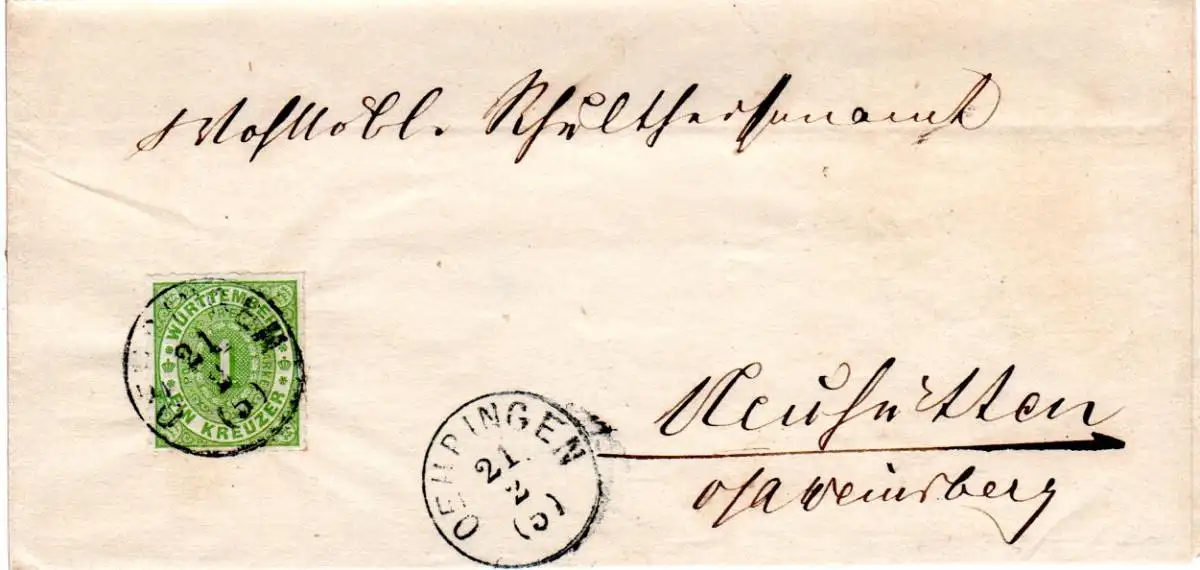 Wohllöbl. Schultheissenamt
WÜRTTEMBERG
1
EIN KREUZER
OEHRINGEN
21
2
(5)
OEHRINGEN
21
2
(5)
Neuhütten
O/A Weinsberg